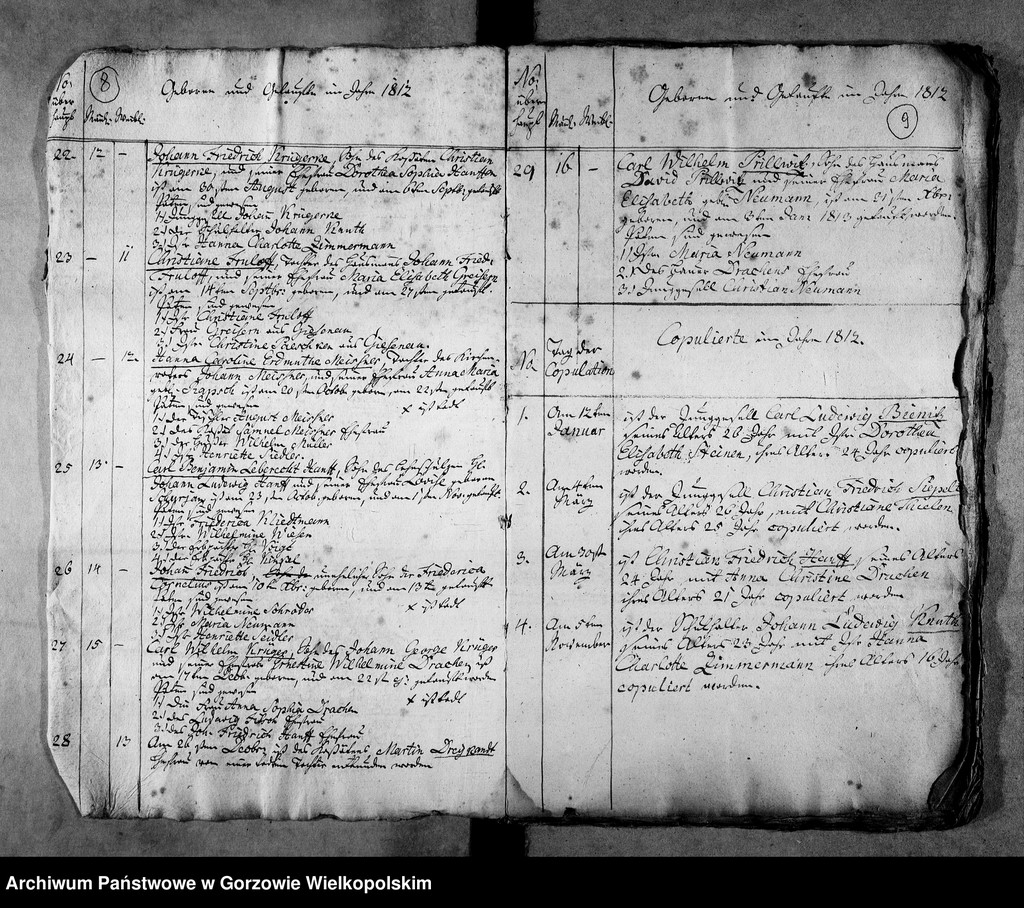 8
No. über haupt
Mäñl. Weibl.
Geboren und Getaufte im Jahre 1812
22 12 – Johann Friedrich Krügerne, Sohn des Kossäten Christian
Krügerne, und seiner Ehefrau Dorothea Sophia Hanffen
ist am 30sten August geboren, und am 6ten Septbr getauft
Paten sind gewesen
1) Junggesell Johann Krügerne
2) der Schulhalter Johann Knuth
3) Jgfr Hanna Charlotte Zimmermann
23 – 11 Christiane Fruloff, Tochter des Johann Fried.
Fruloff, und seiner Ehefrau Maria Elisabeth Greisern
ist am 14ten Septbr: geboren, und am 27sten getauft.
Paten sind gewesen
1) Jgfr Christiane Fruloff
2) Frau Greisern aus Giesenau
3) Jgfr Christine aus Giesenau.
24 – 12 Hanna Caroline Erdmuthe Meissner, Tochter des
Johann Meissner, und seiner Ehefrau Anna Maria
geb. ist am 20sten Octob. geboren, am 22sten getauft
Paten sind gewesen x ist todt
1) der August Meissner
2) des Samuel Meissner Ehefrau
3) der Wilhelm Müller
4) Jgfr Henriette Siedler.
25 13 – Carl Benjamin Leberecht Hanff, Sohn des
Johann Ludwig Hanff und seiner Ehefrau Louise geborene
ist am 23sten Octob. geboren, und am 1sten Nov. getauft.
Paten sind gewesen
1) Jgfr Friederica Kliedtmann
2) Jgfr Wilhelmine
3) der Voigt
4) der
26 14 – Johann Friedrich uneheliche Sohn der Friederica
Cornelius ist am 10ten Xbr: geboren, und am 13ten getauft
Paten sind gewesen
1) Jgfr Wilhelmine Schröder x ist todt
2) Jgfr Maria Neumann
3) Jgfr Henriette Seidler
27 15 – Carl Wilhelm Krüger, Sohn des Johann George Krüger
und seiner Ehefrau Ernestine Wilhelmine Drachen ist
am 17ten Decbr. geboren, und am 22st getauft worden
Paten sind gewesen
1) Die Frau Anna Sophia Drachen x ist todt
2) des Ludwig Ehefrau
3) des Joh. Friedrich Hanff Ehefrau
28 13 Am 26sten Decbr: ist des Kossäten, Martin
Ehefrau von einer todten Tochter entbunden worden
No. über haupt
Mäñl. Weibl.
Geboren und Getaufte im Jahre 1812
9
29 16 – Carl Wilhelm Prillwitz, Sohn des
David Prillwitz und seiner Ehefrau Maria
Elisabeth geb: Neumann, ist am 31sten Xbr:
geboren, und am 3ten Janr 1813 getauft worden.
Paten sind gewesen
1) Jgfr Maria Neumann
2) des Bauer Drachens Ehefrau
3) Junggesell Christian Neumann
Copulierte im Jahre 1812.
No. Tag der
Copulation
1. Am 12ten ist der Junggesell Carl Ludewig Bienitz
Januar seines Alters 26 Jahr mit Jgfr Dorothea
Elisabeth Steinen, ihres Alters 24 Jahr copuliert
worden.
2. Am 4ten ist der Junggesell Christian Friedrich
März seines Alters 26 Jahr, mit Christiane Thielen
ihres Alters 25 Jahr copuliert worden.
3. Am 30st ist Christian Friedrich Hanff, seines Alters
März 24 Jahr, mit Anna Christine Drachen
ihres Alters 21 Jahr copuliert worden
4. Am 5ten ist der Schulhalter Johann Ludewig Knuth
November seines Alters 23 Jahr mit Jgfr Hanna
Charlotte Zimmermann ihres Alters 16 Jahr
copuliert worden.
Archiwum Państwowe w Gorzowie Wielkopolskim